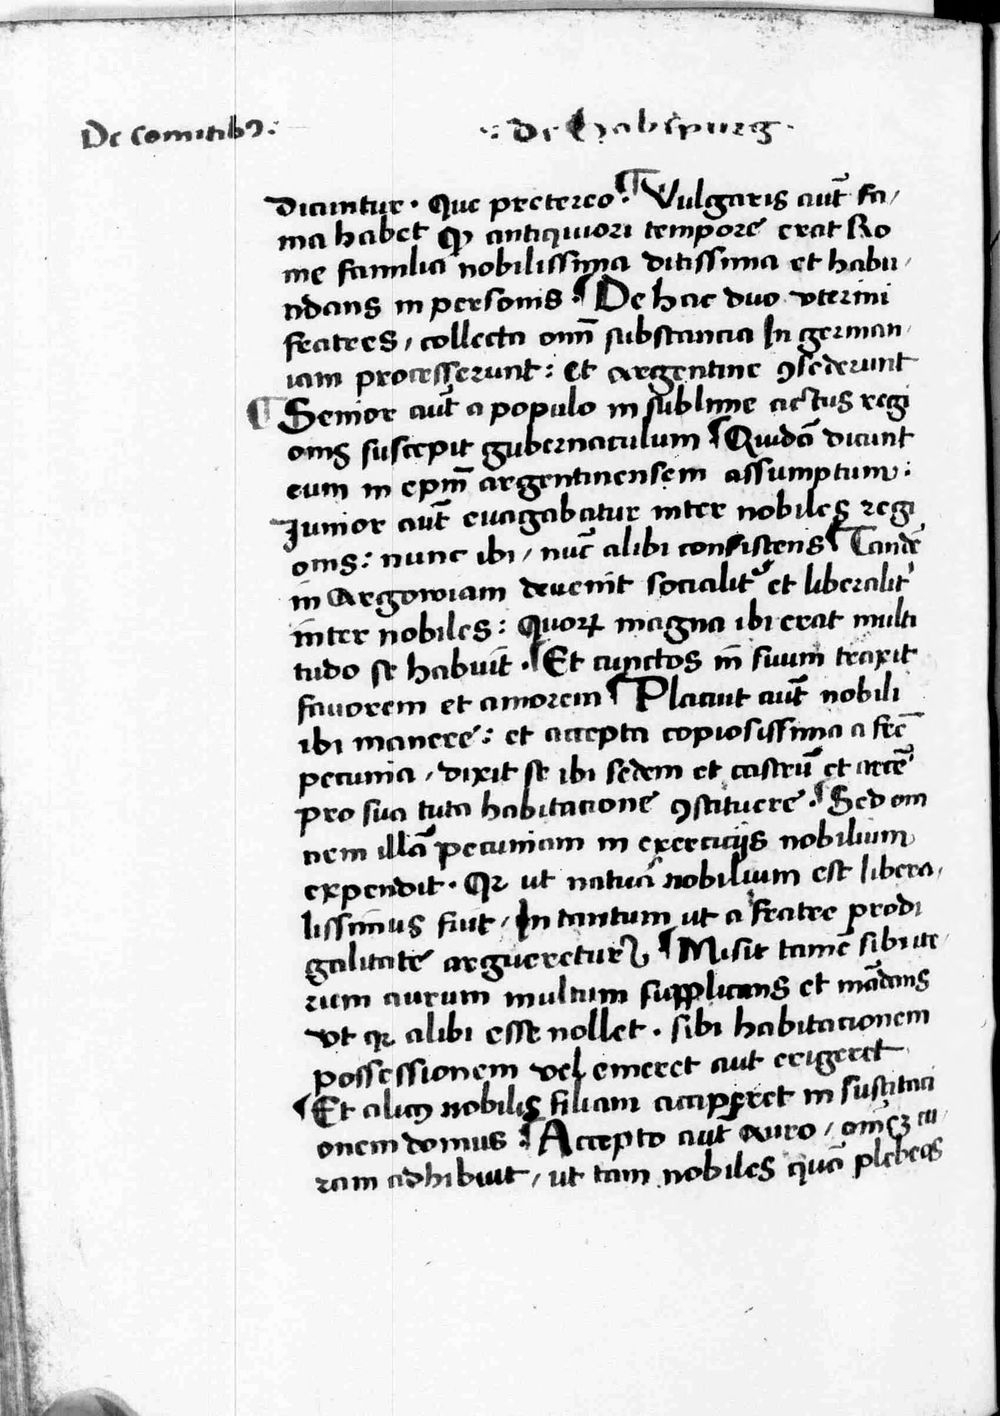 De comitibꝰ: ·:de habspurg·
dicuntur· Que pretereo· ¶ Vulgaris aut̄ fa/
ma habet ꝙ antiquiori tempore erat Ro
me familia nobilissima ditissima et habu/
ndans in personis· ¶ De hac duo vterini
fratres, collecta om̄i substancia In german/
iam processerunt: et argentine ꝯsederunt
¶ Senior aut̄ a populo in sublime actus regi
onis suscepit gubernaculum ¶ Quidā dicunt
eum in ep̄m argentinensem assumptum:
Junior aut̄ euagabatur inter nobiles regi
onis: nunc ibi, nūc alibi consistens ¶ Tandē
in Argowiam deuenit socialit᷑ et liberalit᷑
inter nobiles: Quoꝝ magna ibi erat multi
tudo se habuit· ¶ Et cunctos in suum traxit
fauorem et amorem ¶ Placuit aut̄ nobili
ibi manere: et accepta copiosissima a fr̄e
pecunia, dixit se ibi sedem et castrū et arcē
pro sua tuta habitacione ꝯstituere· ¶ Sed om
nem illā pecuniam in exercicijs nobilium
expendit· Qꝛ ut natura nobilium est libera/
lissimus fuit, In tantum ut a fratre prodi
galitate argueretur ¶ Misit tamē sibi ite/
rum aurum multum supplicans et mādans
vt qꝛ alibi esse nollet· sibi habitacionem
possessionem vel emeret aut erigeret
¶ Et alicꝰ nobilis filiam acciperet in sustitaci
onem domus ¶ Accepto aut̄ auro, om̄eꝫ cu/
ram adhibuit, ut tam nobiles quā plebeos